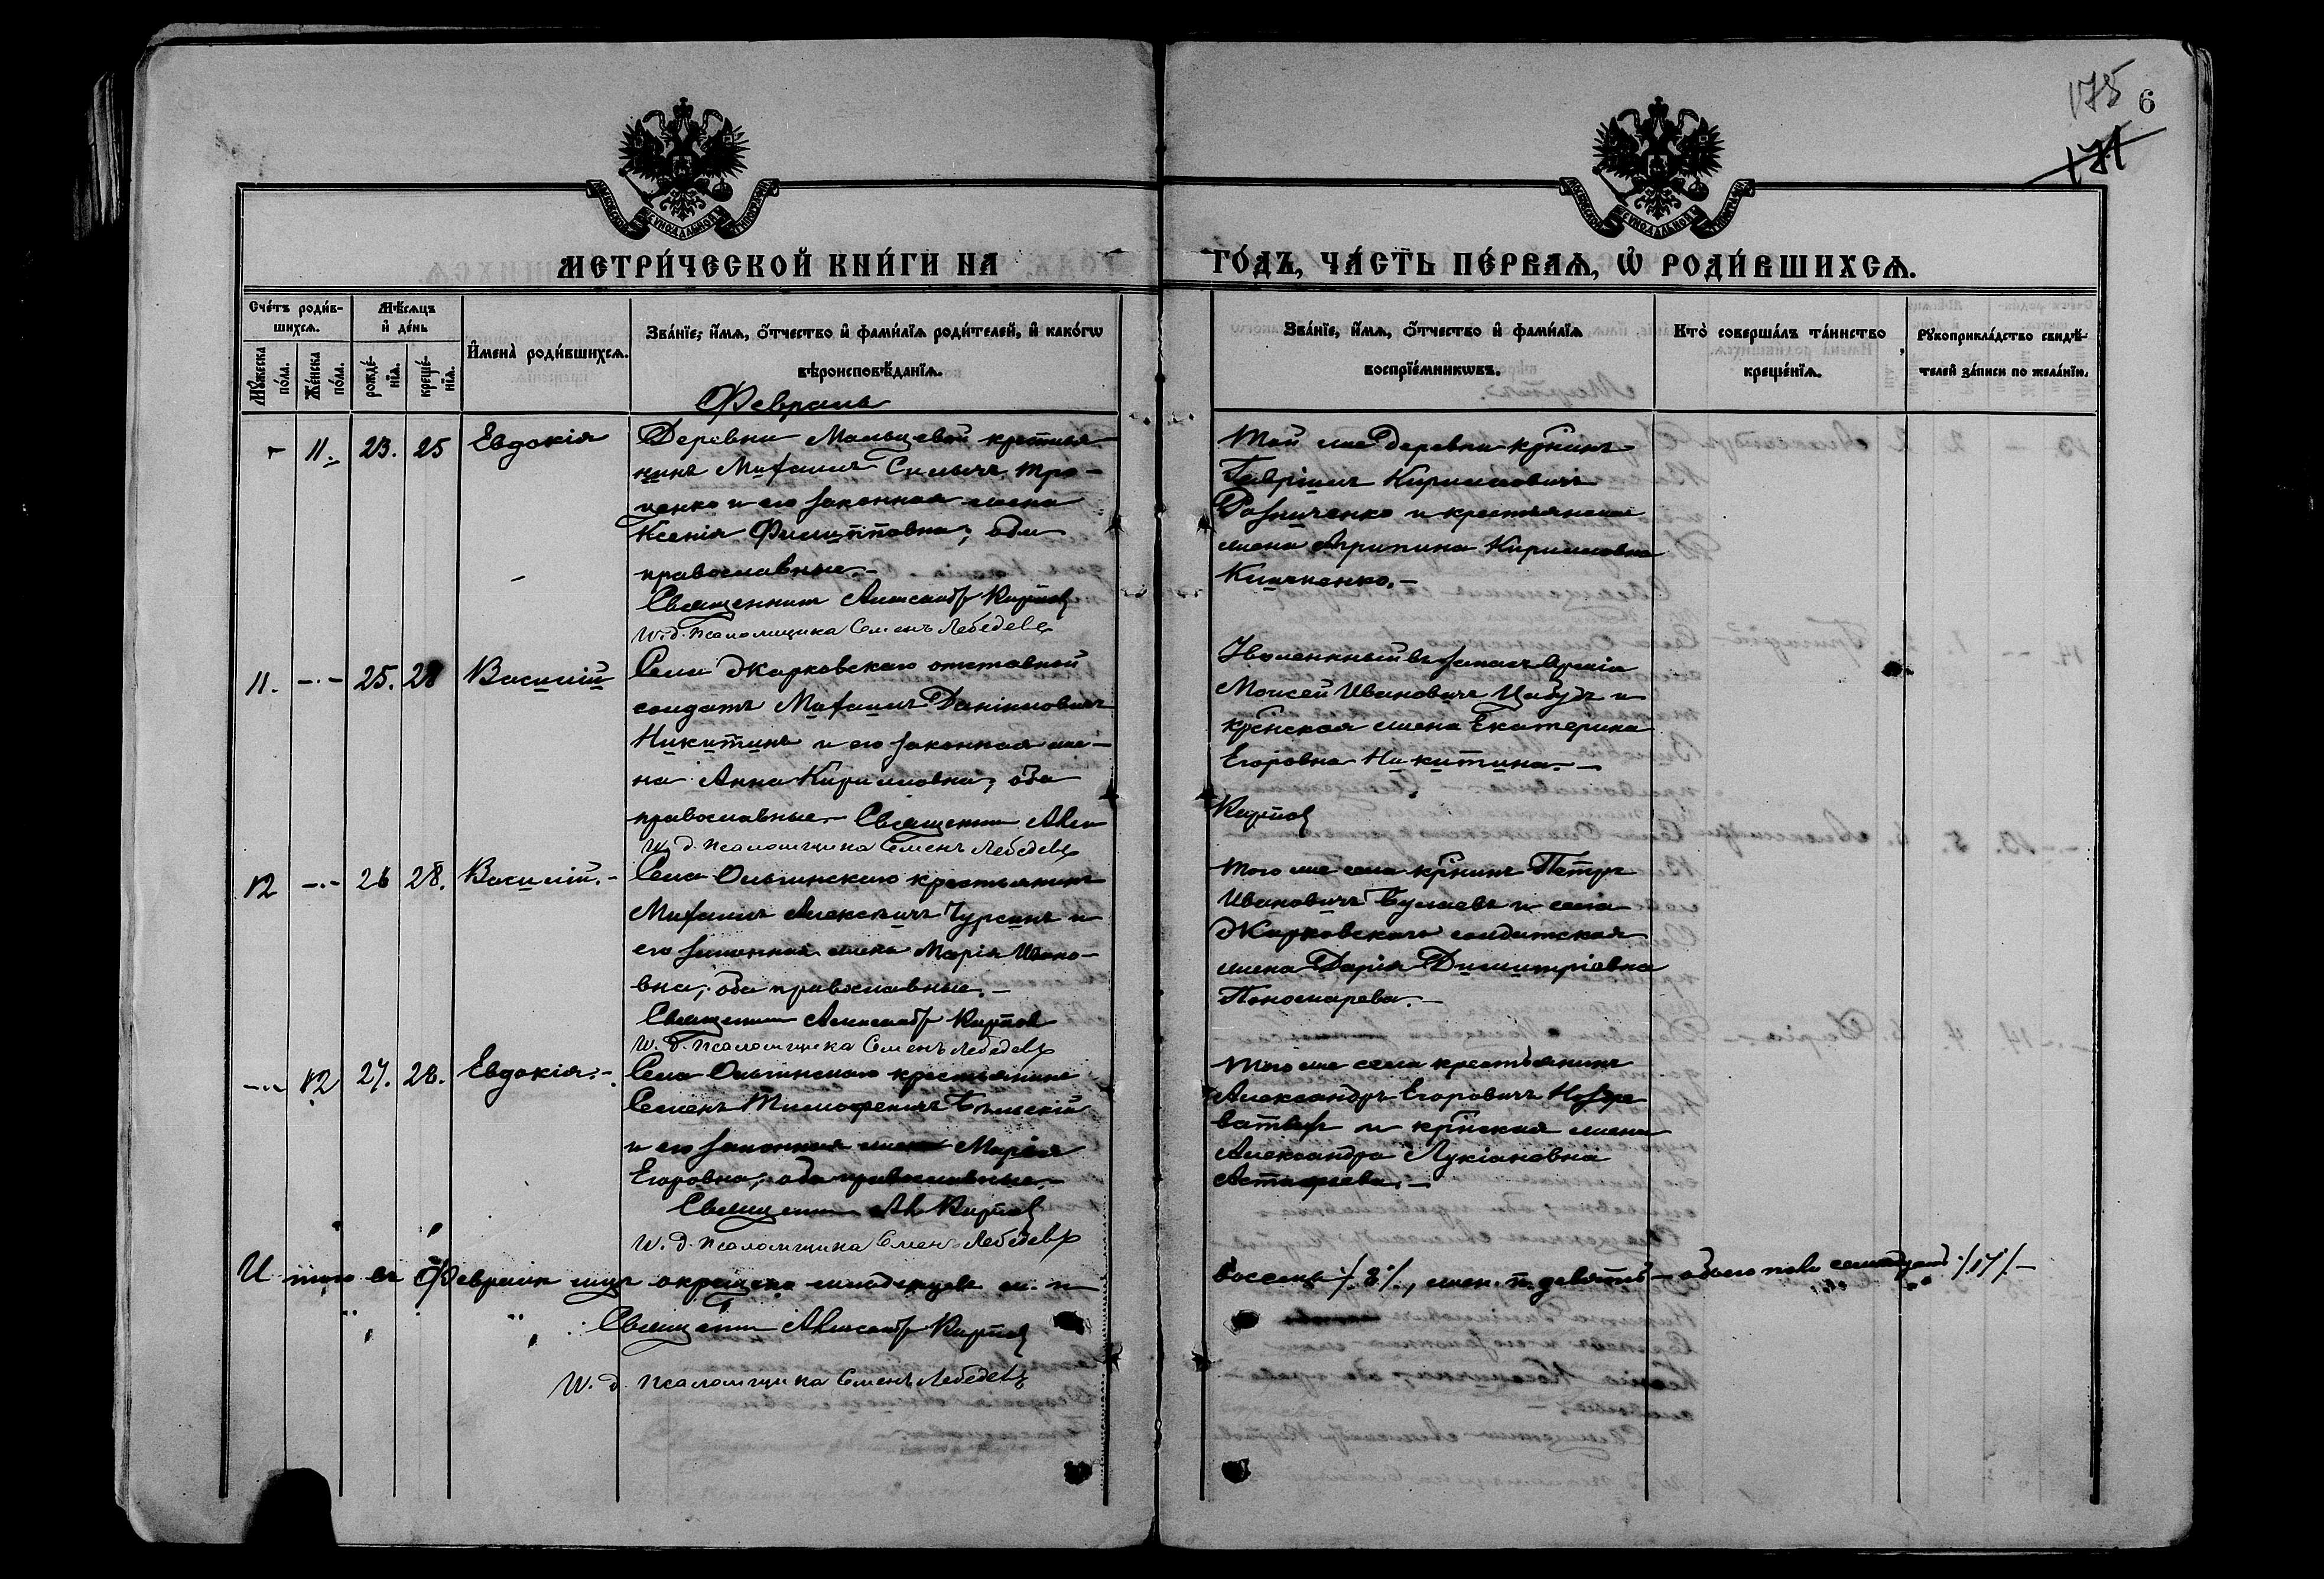 175 6
171
МЕТРИ́ЧЕСКОЙ КНИ́ГИ НА
ГО́ДЪ, ЧА́СТЬ ПЕ́РВАѦ, Ѡ РОДИ́ВШИХСѦ.
Сче́тъ роди́в-
шихсѧ.
Мѣ́сѧцъ
и҆ де́нь
Мꙋ́жеска
по́ла.
Же́нска
по́ла.
рожде́-
нїѧ.
креще́-
нїѧ.
И҆мена̀ роди́вшихсѧ.
Зва́нїе, и҆́мѧ, ѻ҆́тчество и҆ фами́лїѧ роди́телей, и҆ како́гѡ
вѣроисповѣ́данїѧ.
Зва́нїе, и҆́мѧ, ѻ҆́тчество и҆ фами́лїѧ
воспрїе́мникѡвъ.
Кто̀ соверша́лъ та́инство
креще́нїѧ.
Рꙋкоприкла́дство свидѣ́-
телей за́писи по жела́нїю.
Февраль
- 11. 23. 25 Евдокія
Деревни Мальцевой крестья-
нинъ Михаилъ
и его законная жена
Ксенія Филипповна; оба
православные.-
Священникъ Александръ
И. д. псаломщика Семенъ Лебедевъ
Той же деревни кр-нинъ
Гавріилъ Кирилловичъ
и крестьянская
жена Агрипина Кирилловна
11. -.- 25. 28 Василій
Села Жарковскаго отставной
солдатъ Михаилъ Даниловичъ
Никитинъ и его законная же-
на Анна Кирилловна, оба
православные.- Священникъ
И. д. псаломщика Семенъ Лебедевъ
Уволенный въ запасъ арміи
Моисей Ивановичъ и
кр-нская жена Екатерина
Егоровна Никитина.-
12 -.- 26 28. Василій.-
Села Ольгинскаго крестьянинъ
Михаилъ Алексѣичъ Чурсинъ и
его законная жена Марія Ивано-
вна; оба православные.-
Священникъ Александръ
И. д. псаломщика Семенъ Лебедевъ
Того же села кр-нинъ Петръ
Ивановичъ и села
Жарковскаго солдатская
жена Дарія Димитріевна
Пономарева.-
-.- 12 27. 28. Евдокія.-
Села Ольгинскаго крестьянинъ
Семенъ Тимофеичъ Бѣльскій
и его законная жена Марія
Егоровна; оба православные.-
Священникъ
И. д. псаломщика Семенъ Лебедевъ
Того же села крестьянинъ
Александръ Егоровичъ Нозdре-
ватыхъ и кр-нская жена
Александра Лукіановна
Астафіева.-
Итого въ Февралѣ м-цѣ окрещено младенцевъ м. п.
восемь /.8/., жен. п. девять - обоего пола семнадцать /.17/.-
Священникъ Александръ
И. д. псаломщика Семенъ Лебедевъ